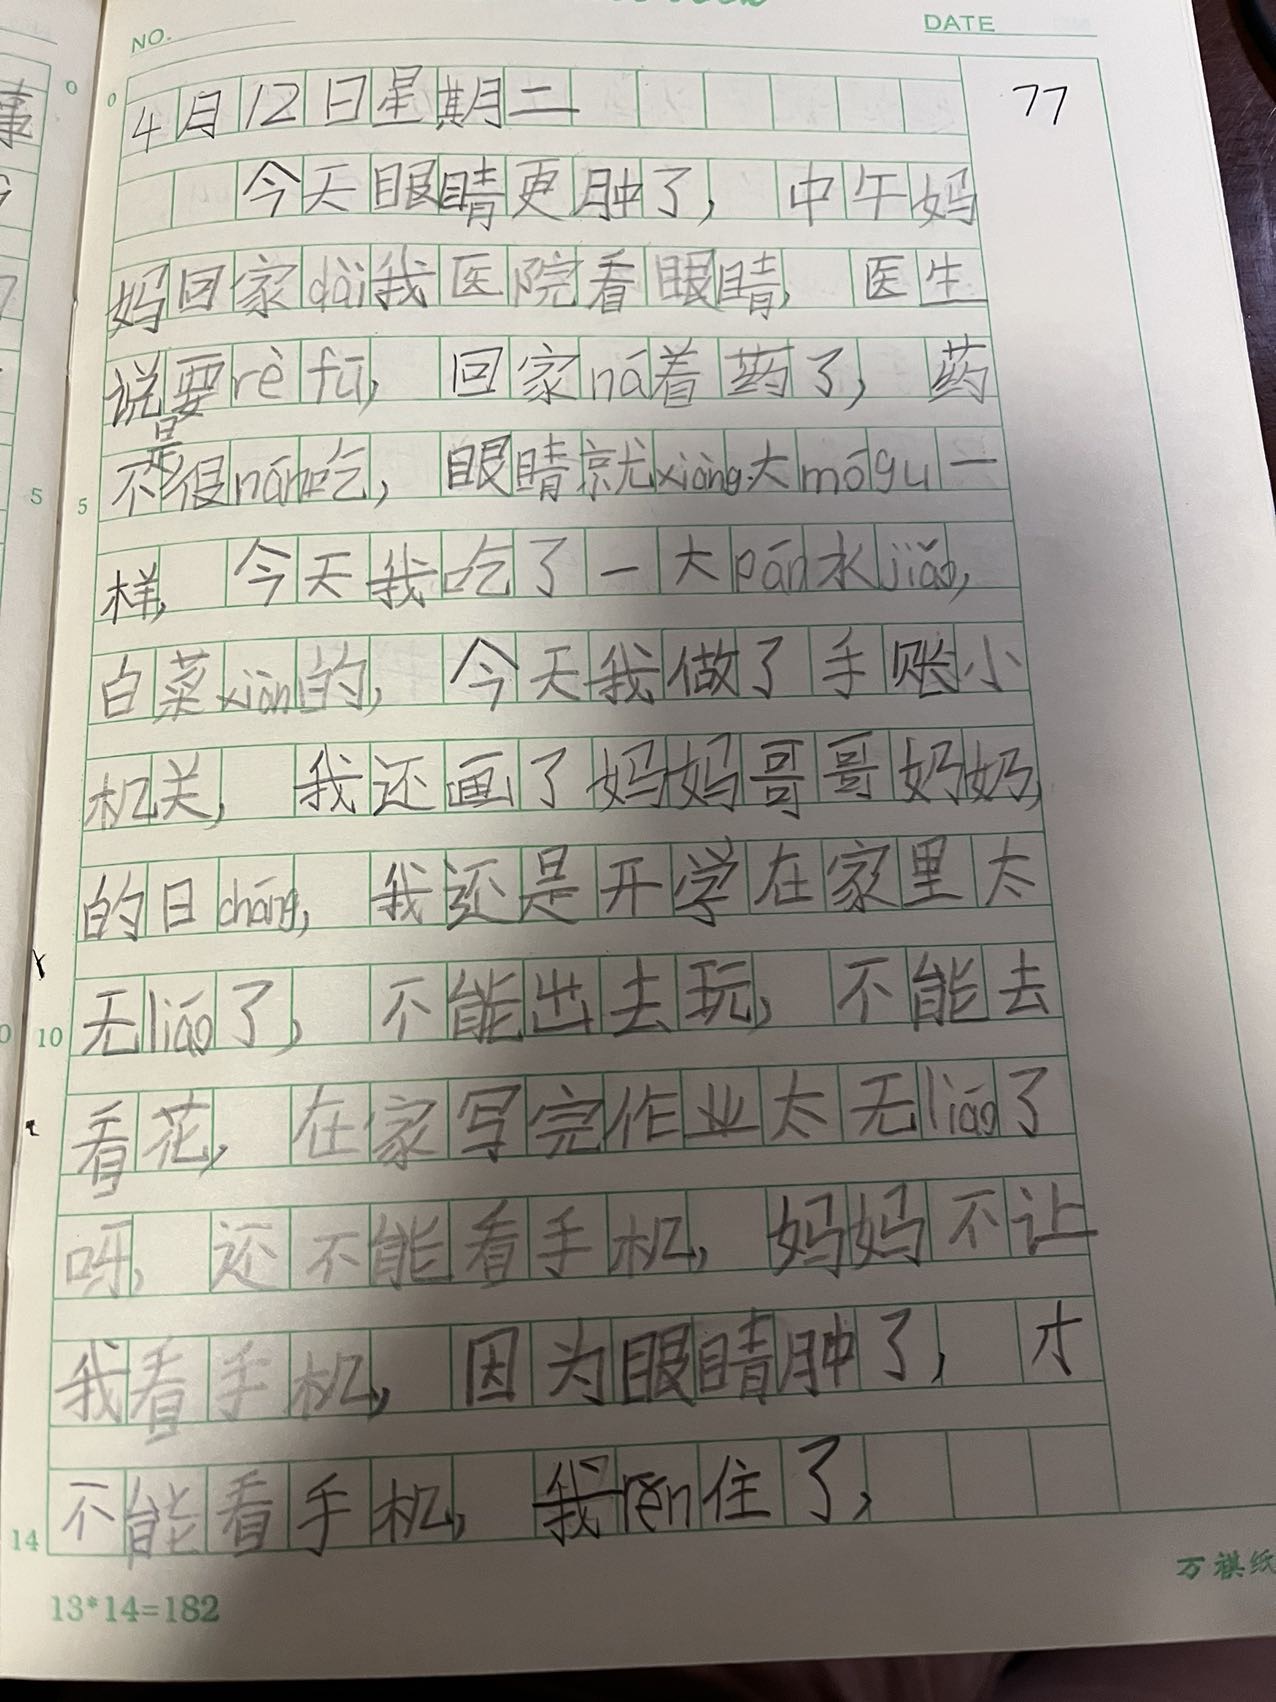 NO.
DATE
77
4月12日星期二
今天眼睛更肿了，中午妈
妈回家dài我医院看眼睛，医生
说要rè fū，回家ná着药了，药
不是很nán吃，眼睛就xiàng大mógu一
样，今天我吃了一大pán水jiǎo，
白菜xiàn的，今天我做了手账小
机关，我还画了妈妈哥哥奶奶，
的日cháng，我还是开学在家里太
无liáo了，不能出去玩，不能去
看花，在家写完作业太无liáo了
呀，还不能看手机，妈妈不让
我看手机，因为眼睛肿了，才
不能看手机，我rěn住了，
0
5
10
14
13*14=182
万祺纸